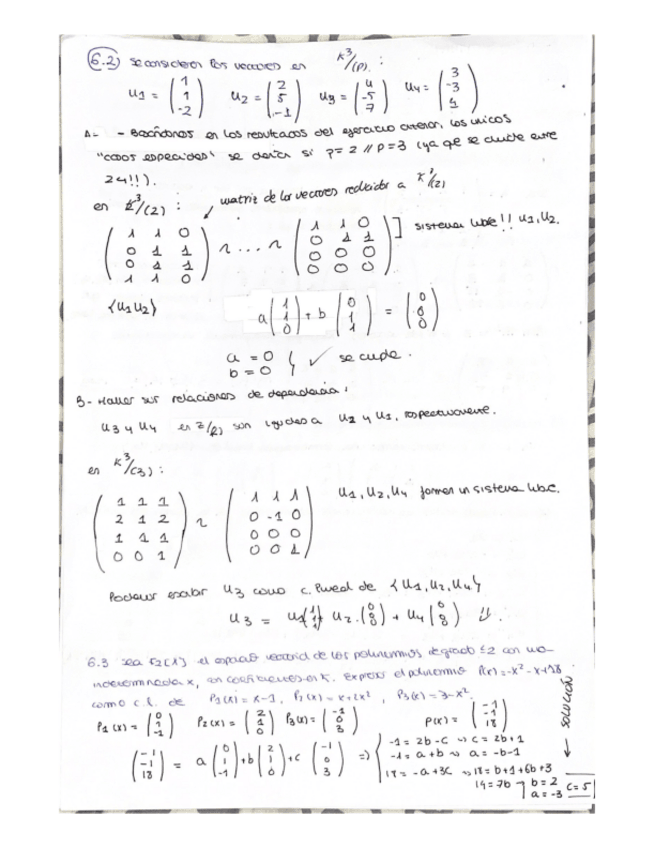 6.2) se consideran los vectores en K³/(p).
u1 = (1 1 -2) u2 = (2 5 -1) u3 = (4 -5 7) u4 = (3 -3 1)
A- - Basándonos en los resultados del ejercicio anterior, los únicos
"casos especiales" se darían si p=2 // p=3 (ya que se divide entre
24!!).
en Z³/(2) : matriz de los vectores reducidos a K³/(2)
(1 1 0
0 1 1
0 1 1
1 1 0) ~ ... ~ (1 1 0
0 1 1
0 0 0
0 0 0) ] sistema libre!! u1, u2.
{u1 u2}
a (1 1 0) + b (0 1 1) = (0 0 0)
a = 0
b = 0 } ✓ se cumple.
B- Hallar sus relaciones de dependencia:
u3 y u4 en Z/(2) son iguales a u2 y u1, respectivamente.
en K³/(3) :
(1 1 1
2 1 2
1 1 1
0 0 1) ~ (1 1 1
0 -1 0
0 0 0
0 0 1) u1, u2, u4 forman un sistema libre.
Podemos escribir u3 como c. lineal de {u1, u2, u4}
u3 = u1 (1 1 1) u2 · (0 0 0) + u4 (0 0 0)
6.3 sea el espacio vectorial de los polinomios de grado ≤2 con una
indeterminada x, con coeficientes en K. Expresar el polinomio P(x)=-x²-x+18
como c.l. de P1(x) = x-1, P2(x) = x+2x², P3(x) = 3-x².
P1(x) = (0 1 -1) P2(x) = (2 1 0) P3(x) = (-1 0 3) P(x) = (-1 -1 18)
SOLUCIÓN
(-1 -1 18) = a (0 1 -1) + b (2 1 0) + c (-1 0 3) ⇒ { -1 = 2b - c → c = 2b+1
-1 = a + b → a = -b-1
18 = -a + 3c → 18 = b+1+6b+3
14 = 7b b = 2 a = -3 c = 5